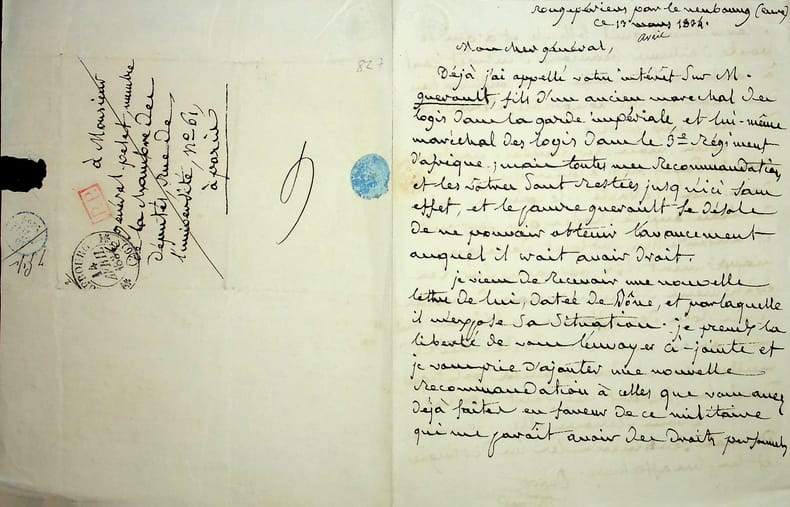 à Monsieur
général petit membre
de la chambre des
députés, Rue de
l'université, n° 61,
à paris
P.P.
827
rougepériers par le neubourg (eure)
ce 13 mars
avril
Mon cher général,
Déjà j'ai appellé votre intérêt sur M.
guerault, fils d'un ancien marechal des
logis dans la garde impériale et lui-même
maréchal des logis dans le 3e Régiment
d'afrique. mais toutes mes recommandations
et les vôtres sont restées jusqu'ici sans
effet, et le pauvre guerault se désole
de ne pouvoir obtenir l'avancement
auquel il croit avoir droit.
je viens de recevoir une nouvelle
lettre de lui, datée de Bône, et par laquelle
il m'expose sa situation. je prends la
liberté de vous l'envoyer ci-jointe et
je vous prie d'ajouter une nouvelle
recommandation à celles que vous avez
déjà faites en faveur de ce militaire
qui me paraît avoir des droits personnels